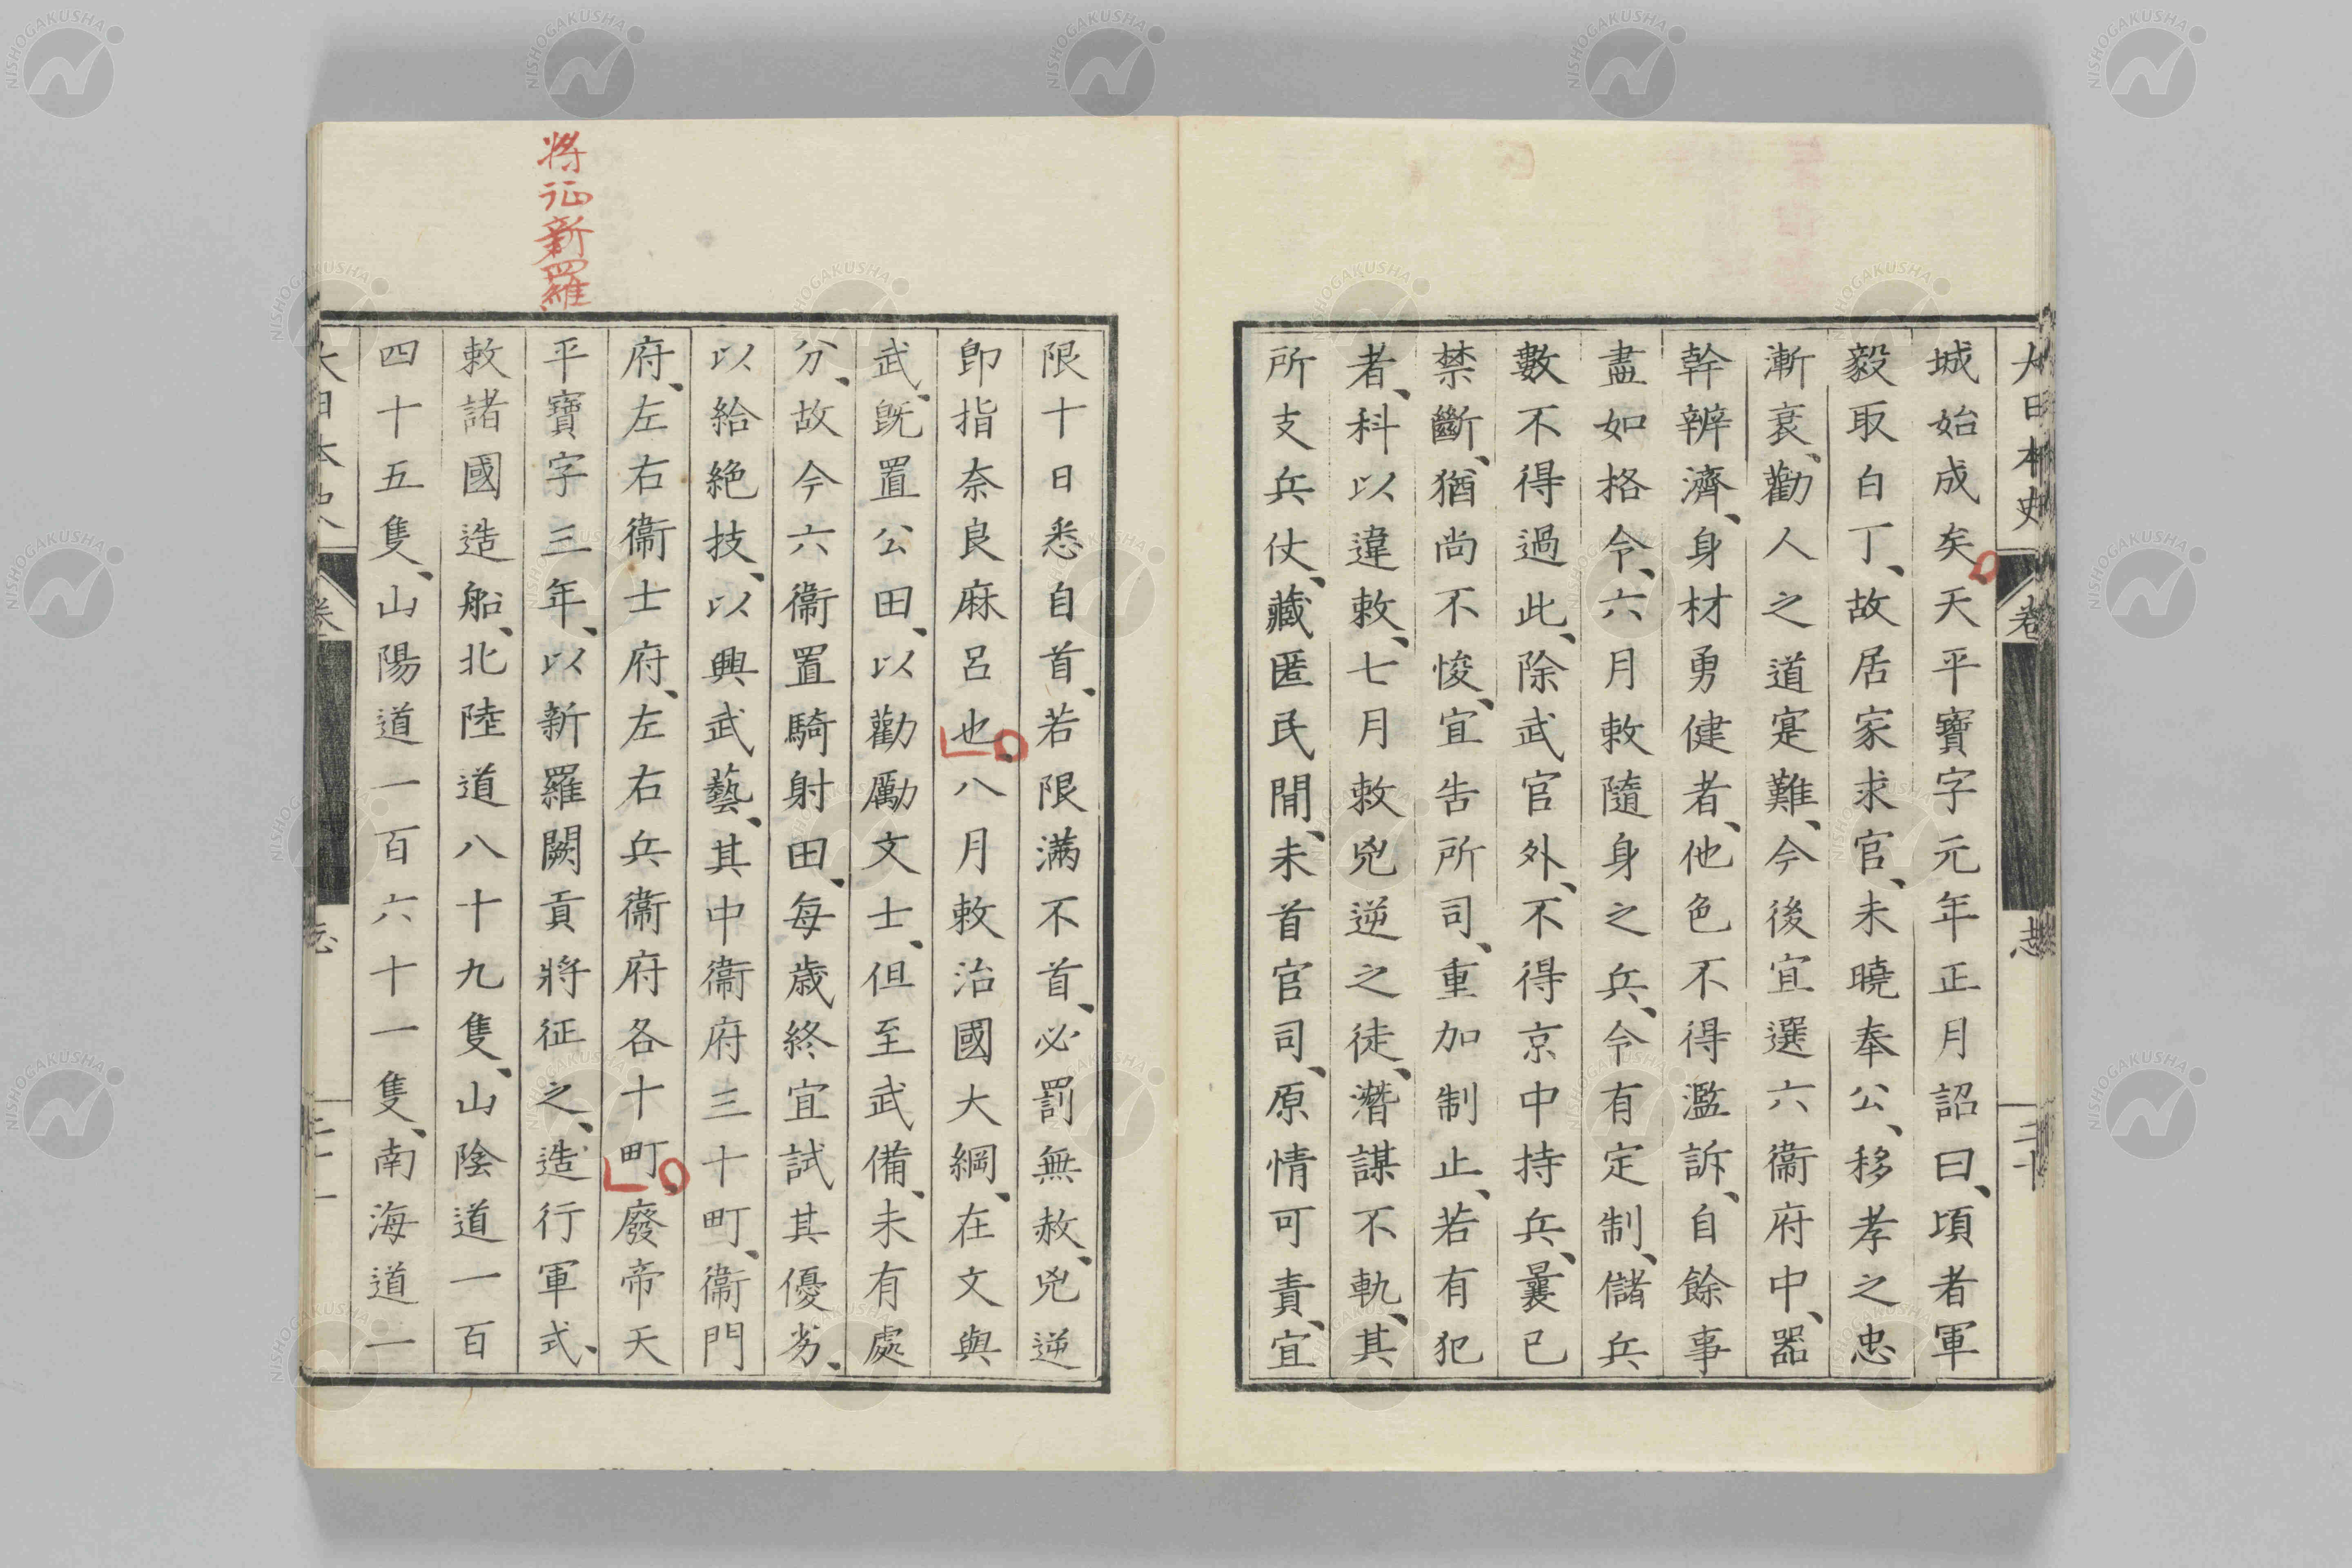 大日本史 卷 志 二十
城始成矣天平寶字元年正月詔曰、頃者軍
毅取白丁、故居家求官、未曉奉公、移孝之忠
漸衰、勸人之道寔難、今後宜選六衞府中、器
幹辨濟、身材勇健者、他色不得濫訴、自餘事
盡如格令、六月敕隨身之兵、令有定制、儲兵
數不得過此、除武官外、不得京中持兵、曩已
禁斷、猶尚不悛、宜告所司、重加制止、若有犯
者、科以違敕、七月敕兇逆之徒、潛謀不軌、其
所支兵仗、藏匿民閒、未首官司、原情可責、宜
將征新羅
限十日悉自首、若限滿不首、必罰無赦、兇逆
卽指奈良麻呂也八月敕治國大綱、在文與
武、旣置公田、以勸勵文士、但至武備、未有處
分、故今六衞置騎射田、每歲終宜試其優劣、
以給絕技、以興武藝、其中衞府三十町、衞門
府、左右衞士府、左右兵衞府各十町廢帝天
平寶字三年、以新羅闕貢將征之、造行軍式、
敕諸國造船、北陸道八十九隻、山陰道一百
四十五隻、山陽道一百六十一隻、南海道一
大日本史 卷 志 二十一